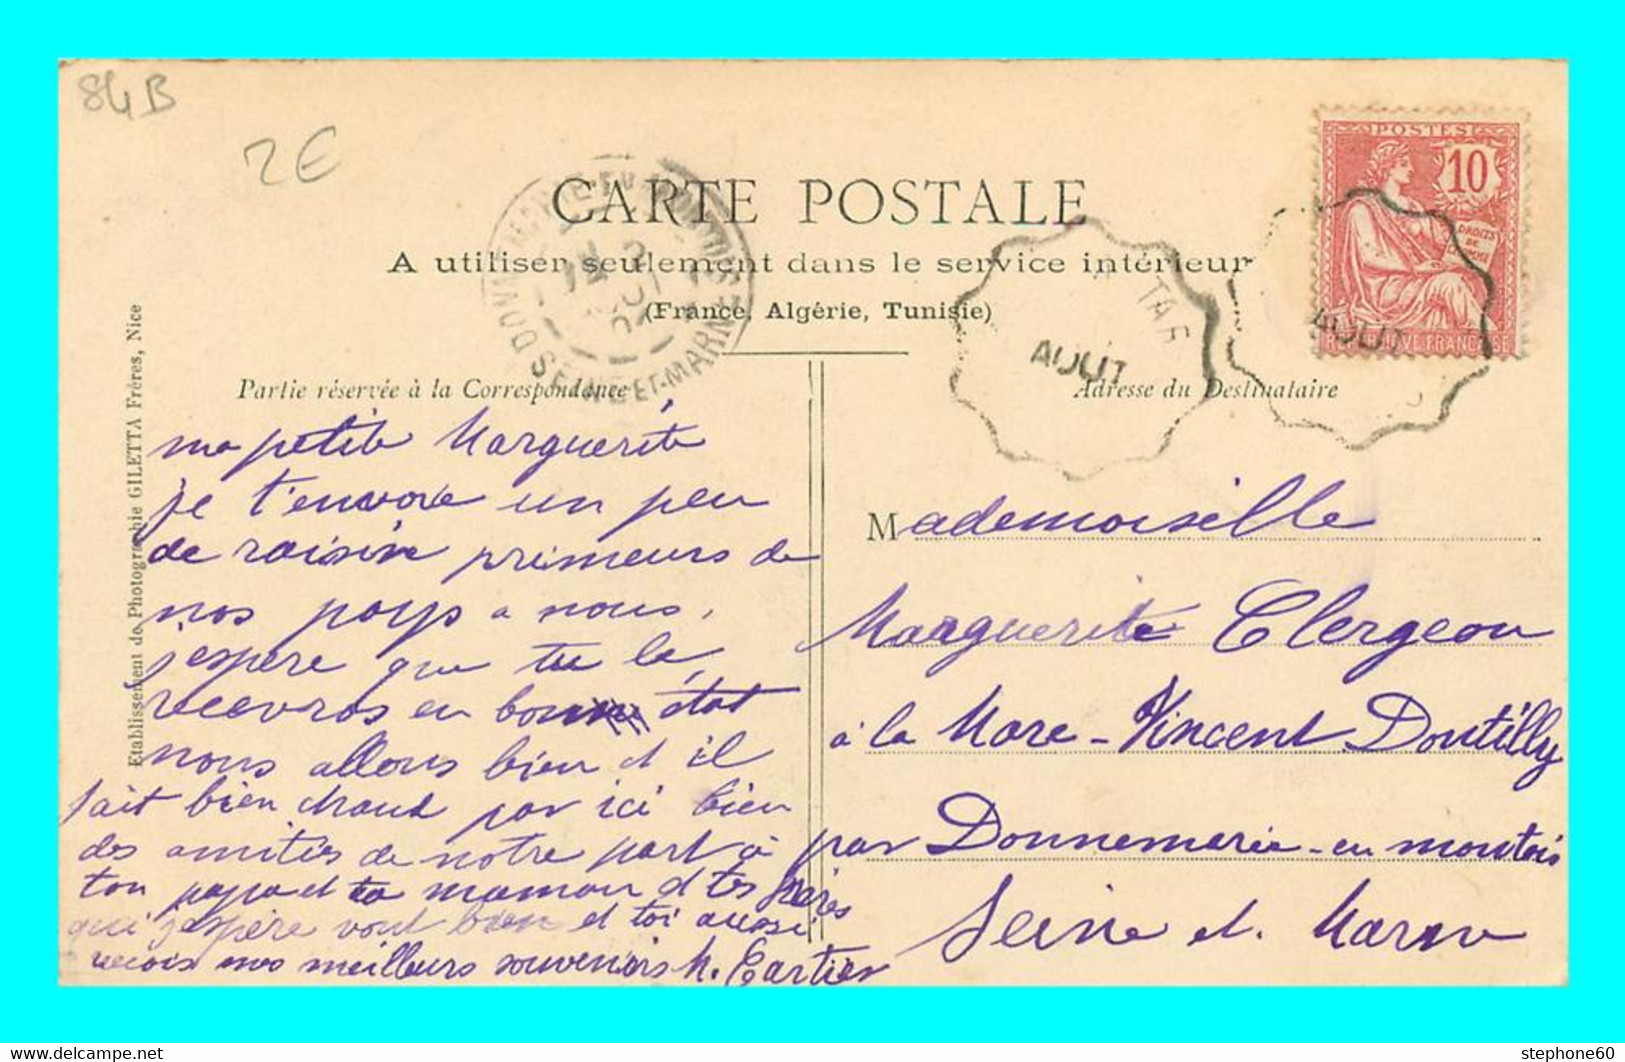 84B
2E
CARTE POSTALE
A utiliser seulement dans le service intérieur
(France, Algérie, Tunisie)
POSTES
10
DROITS
DE
AOUT
AOUT
SEINE-ET-MARNE
Partie réservée à la Correspondance
Adresse du Destinataire
Etablissement de Photographie GILETTA Frères, Nice
ma petite Marguerite
je t'envoie un peu
de raisin primeurs de
nos pays a nous,
j'espère que tu le
recevras en bon état
nous allons bien et il
fait bien chaud par ici bien
des amitiés de notre part à
ton papa et ta maman et tes frères
qui j'espère vont bien et toi aussi
recois nos meilleurs souvenirs M. Cartier
Mademoiselle
Marguerite Clergeau
à la Mare-Vincent Doutilly
par Donnemarie-en montois
Seine et. Marne
stephone60
delcampe.net